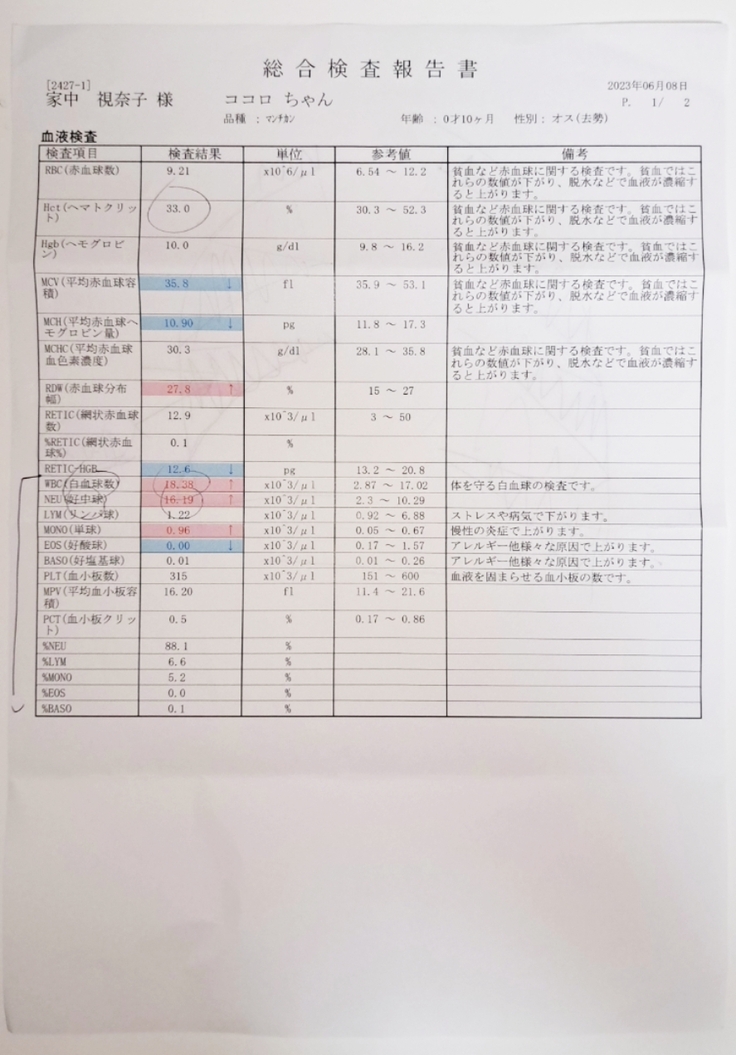 総合検査報告書
[2427-1]
2023年06月08日
家中 視奈子 様 ココロ ちゃん
P. 1/ 2
品種 : マンチカン 年齢 : 0才10ヶ月 性別 : オス(去勢)
血液検査
検査項目 検査結果 単位 参考値 備考
RBC(赤血球数) 9.21 x10^6/μl 6.54 ～ 12.2 貧血など赤血球に関する検査です。貧血ではこ
れらの数値が下がり、脱水などで血液が濃縮す
ると上がります。
Hct(ヘマトクリッ
ト) 33.0 % 30.3 ～ 52.3 貧血など赤血球に関する検査です。貧血ではこ
れらの数値が下がり、脱水などで血液が濃縮す
ると上がります。
Hgb(ヘモグロビ
ン) 10.0 g/dl 9.8 ～ 16.2 貧血など赤血球に関する検査です。貧血ではこ
れらの数値が下がり、脱水などで血液が濃縮す
ると上がります。
MCV(平均赤血球容
積) 35.8 ↓ fl 35.9 ～ 53.1 貧血など赤血球に関する検査です。貧血ではこ
れらの数値が下がり、脱水などで血液が濃縮す
ると上がります。
MCH(平均赤血球ヘ
モグロビン量) 10.90 ↓ pg 11.8 ～ 17.3
MCHC(平均赤血球
血色素濃度) 30.3 g/dl 28.1 ～ 35.8 貧血など赤血球に関する検査です。貧血ではこ
れらの数値が下がり、脱水などで血液が濃縮す
ると上がります。
RDW(赤血球分布
幅) 27.8 ↑ % 15 ～ 27
RETIC(網状赤血球
数) 12.9 x10^3/μl 3 ～ 50
%RETIC(網状赤血
球%) 0.1 %
RETIC-HGB 12.6 ↓ pg 13.2 ～ 20.8
WBC(白血球数) 18.38 ↑ x10^3/μl 2.87 ～ 17.02 体を守る白血球の検査です。
NEU(好中球) 16.19 ↑ x10^3/μl 2.3 ～ 10.29
LYM(リンパ球) 1.22 x10^3/μl 0.92 ～ 6.88 ストレスや病気で下がります。
MONO(単球) 0.96 ↑ x10^3/μl 0.05 ～ 0.67 慢性の炎症で上がります。
EOS(好酸球) 0.00 ↓ x10^3/μl 0.17 ～ 1.57 アレルギー他様々な原因で上がります。
BASO(好塩基球) 0.01 x10^3/μl 0.01 ～ 0.26 アレルギー他様々な原因で上がります。
PLT(血小板数) 315 x10^3/μl 151 ～ 600 血液を固まらせる血小板の数です。
MPV(平均血小板容
積) 16.20 fl 11.4 ～ 21.6
PCT(血小板クリッ
ト) 0.5 % 0.17 ～ 0.86
%NEU 88.1 %
%LYM 6.6 %
%MONO 5.2 %
%EOS 0.0 %
%BASO 0.1 %